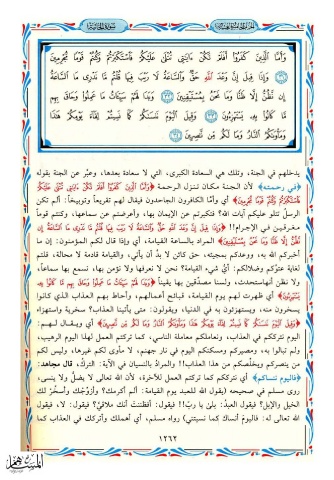 وَأَمَّا الَّذِينَ كَفَرُوا أَفَلَمْ تَكُنْ ءَايَٰتِى تُتْلَىٰ عَلَيْكُمْ فَٱسْتَكْبَرْتُمْ وَكُنتُمْ قَوْمًا مُّجْرِمِينَ
وَإِذَا قِيلَ إِنَّ وَعْدَ ٱللَّهِ حَقٌّ وَٱلسَّاعَةُ لَا رَيْبَ فِيهَا قُلْتُم مَّا نَدْرِى مَا ٱلسَّاعَةُ
إِن نَّظُنُّ إِلَّا ظَنًّا وَمَا نَحْنُ بِمُسْتَيْقِنِينَ وَبَدَا لَهُمْ سَيِّئَاتُ مَا عَمِلُوا وَحَاقَ بِهِم
مَّا كَانُوا بِهِۦ يَسْتَهْزِءُونَ وَقِيلَ ٱلْيَوْمَ نَنسَىٰكُمْ كَمَا نَسِيتُمْ لِقَآءَ يَوْمِكُمْ هَٰذَا
وَمَأْوَىٰكُمُ ٱلنَّارُ وَمَا لَكُم مِّن نَّٰصِرِينَ
يدخلهم في الجنة، وتلك هي السعادة الكبرى، التي لا سعادة بعدها، وعبَّر عن الجنة بقوله
﴿في رحمته﴾ لأن الجنة مكان تنزل الرحمة ﴿وَأَمَّا الَّذِينَ كَفَرُوا أَفَلَمْ تَكُنْ ءَايَٰتِى تُتْلَىٰ عَلَيْكُمْ
فَٱسْتَكْبَرْتُمْ وَكُنتُمْ قَوْمًا مُّجْرِمِينَ﴾ أي وأمَّا الكافرون الجاحدون فيقال لهم تقريعاً وتوبيخاً: ألم تكن
الرسل تتلو عليكم آيات الله؟ فتكبرتم عن الإيمان بها، وأعرضتم عن سماعها، وكنتم قوماً
مغرقين في الإجرام!! ﴿وَإِذَا قِيلَ إِنَّ وَعْدَ ٱللَّهِ حَقٌّ وَٱلسَّاعَةُ لَا رَيْبَ فِيهَا قُلْتُم مَّا نَدْرِى مَا ٱلسَّاعَةُ إِن
نَّظُنُّ إِلَّا ظَنًّا وَمَا نَحْنُ بِمُسْتَيْقِنِينَ﴾ المراد بالساعة القيامة، أي وإذا قال لكم المؤمنون: إن ما
أخبركم الله به، ووعدكم بمجيئه، حق كائن لا بدَّ أن يأتي، والقيامة قادمة لا محالة، قلتم
لغاية عتوِّكم وضلالكم: أيُّ شيء القيامة؟ نحن لا نعرفها ولا نؤمن بها، نسمع بها سماعاً،
ولا نظن أنها ستحدث، ولسنا مصدِّقين بها يقيناً ﴿وَبَدَا لَهُمْ سَيِّئَاتُ مَا عَمِلُوا وَحَاقَ بِهِم مَّا كَانُوا بِهِۦ
يَسْتَهْزِءُونَ﴾ أي ظهرت لهم يوم القيامة، قبائح أعمالهم، وأحاط بهم العذاب الذي كانوا
يسخرون منه، ويستهزئون به في الدنيا، ويقولون: متى يأتينا العذاب؟ سخرية واستهزاء
﴿وَقِيلَ ٱلْيَوْمَ نَنسَىٰكُمْ كَمَا نَسِيتُمْ لِقَآءَ يَوْمِكُمْ هَٰذَا وَمَأْوَىٰكُمُ ٱلنَّارُ وَمَا لَكُم مِّن نَّٰصِرِينَ﴾ أي ويقـال لـهـم:
اليوم نترككم في العذاب، ونعاملكم معاملة الناسي، كما تركتم العمل لهذا اليوم الرهيب،
ولم تبالوا به، ومصيركم ومسكنكم اليوم في نار جهنم، لا مأوى لكم غيرها، وليس لكم
من ينصركم ويخلِّصكم من هذا العذاب!! والمرادُ بالنسيان في الآية: التركُ، قال مجاهد:
﴿فاليوم ننساكم﴾ أي نترككم كما تركتم العمل للآخرة، لأن الله تعالى لا يضلُّ ولا ينسى،
روى مسلم في صحيحه (يقول الله للعبد يوم القيامة: ألم أكرمك؟ وأزوِّجْك وأسخِّرْ لك
الخيل والإبل؟ فيقول العبدُ: بلى يا ربّ!! فيقول: أفظننت أنك ملاقيَّ؟ فيقول: لا، فيقول
الله تعالى له: فاليوم أنساك كما نسيتني) رواه مسلم، أي أهملك وأتركك في العذاب كما
١٢٦٢